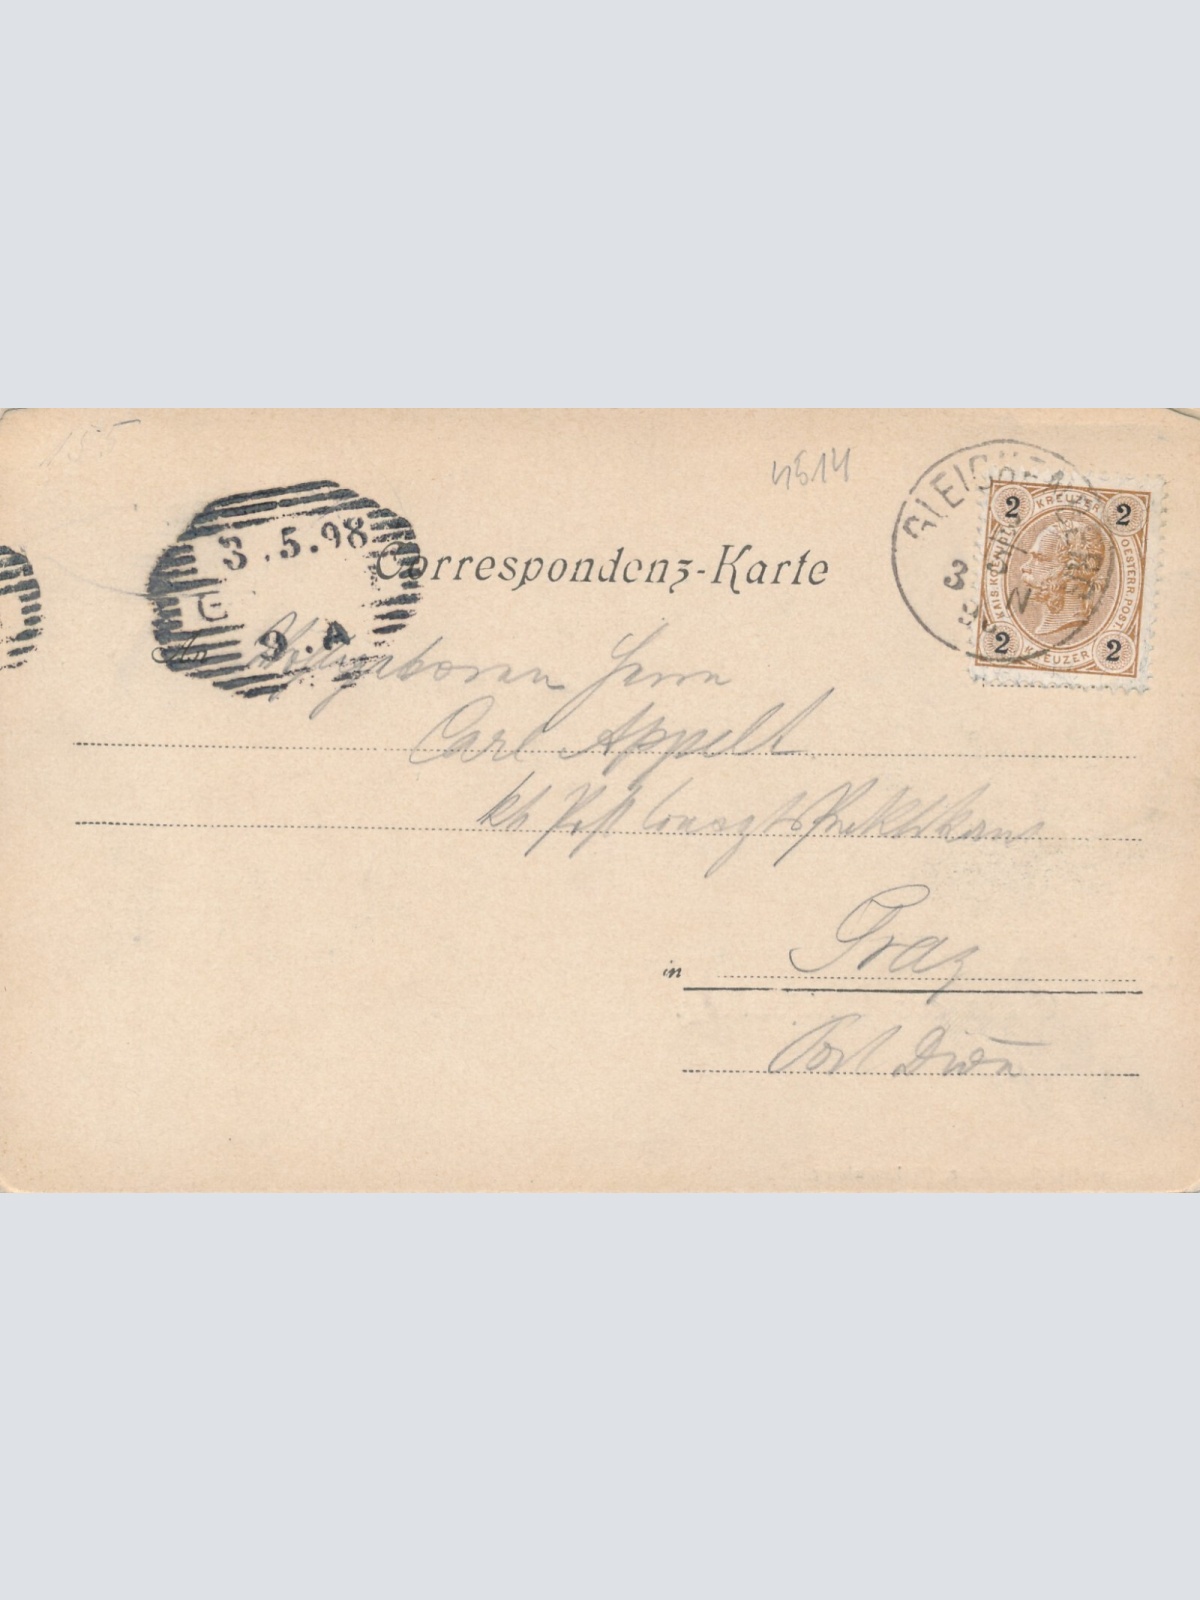 155
4514
GLEICHENBERG
3 5
98 N
2 KREUZER 2
KAIS. KOENIGL. OESTERR. POST.
2 KREUZER 2
3.5.98
9.A
Correspondenz-Karte
An Wohlgeboren Herrn
Carl Appelt
kk Post
in Graz
Post